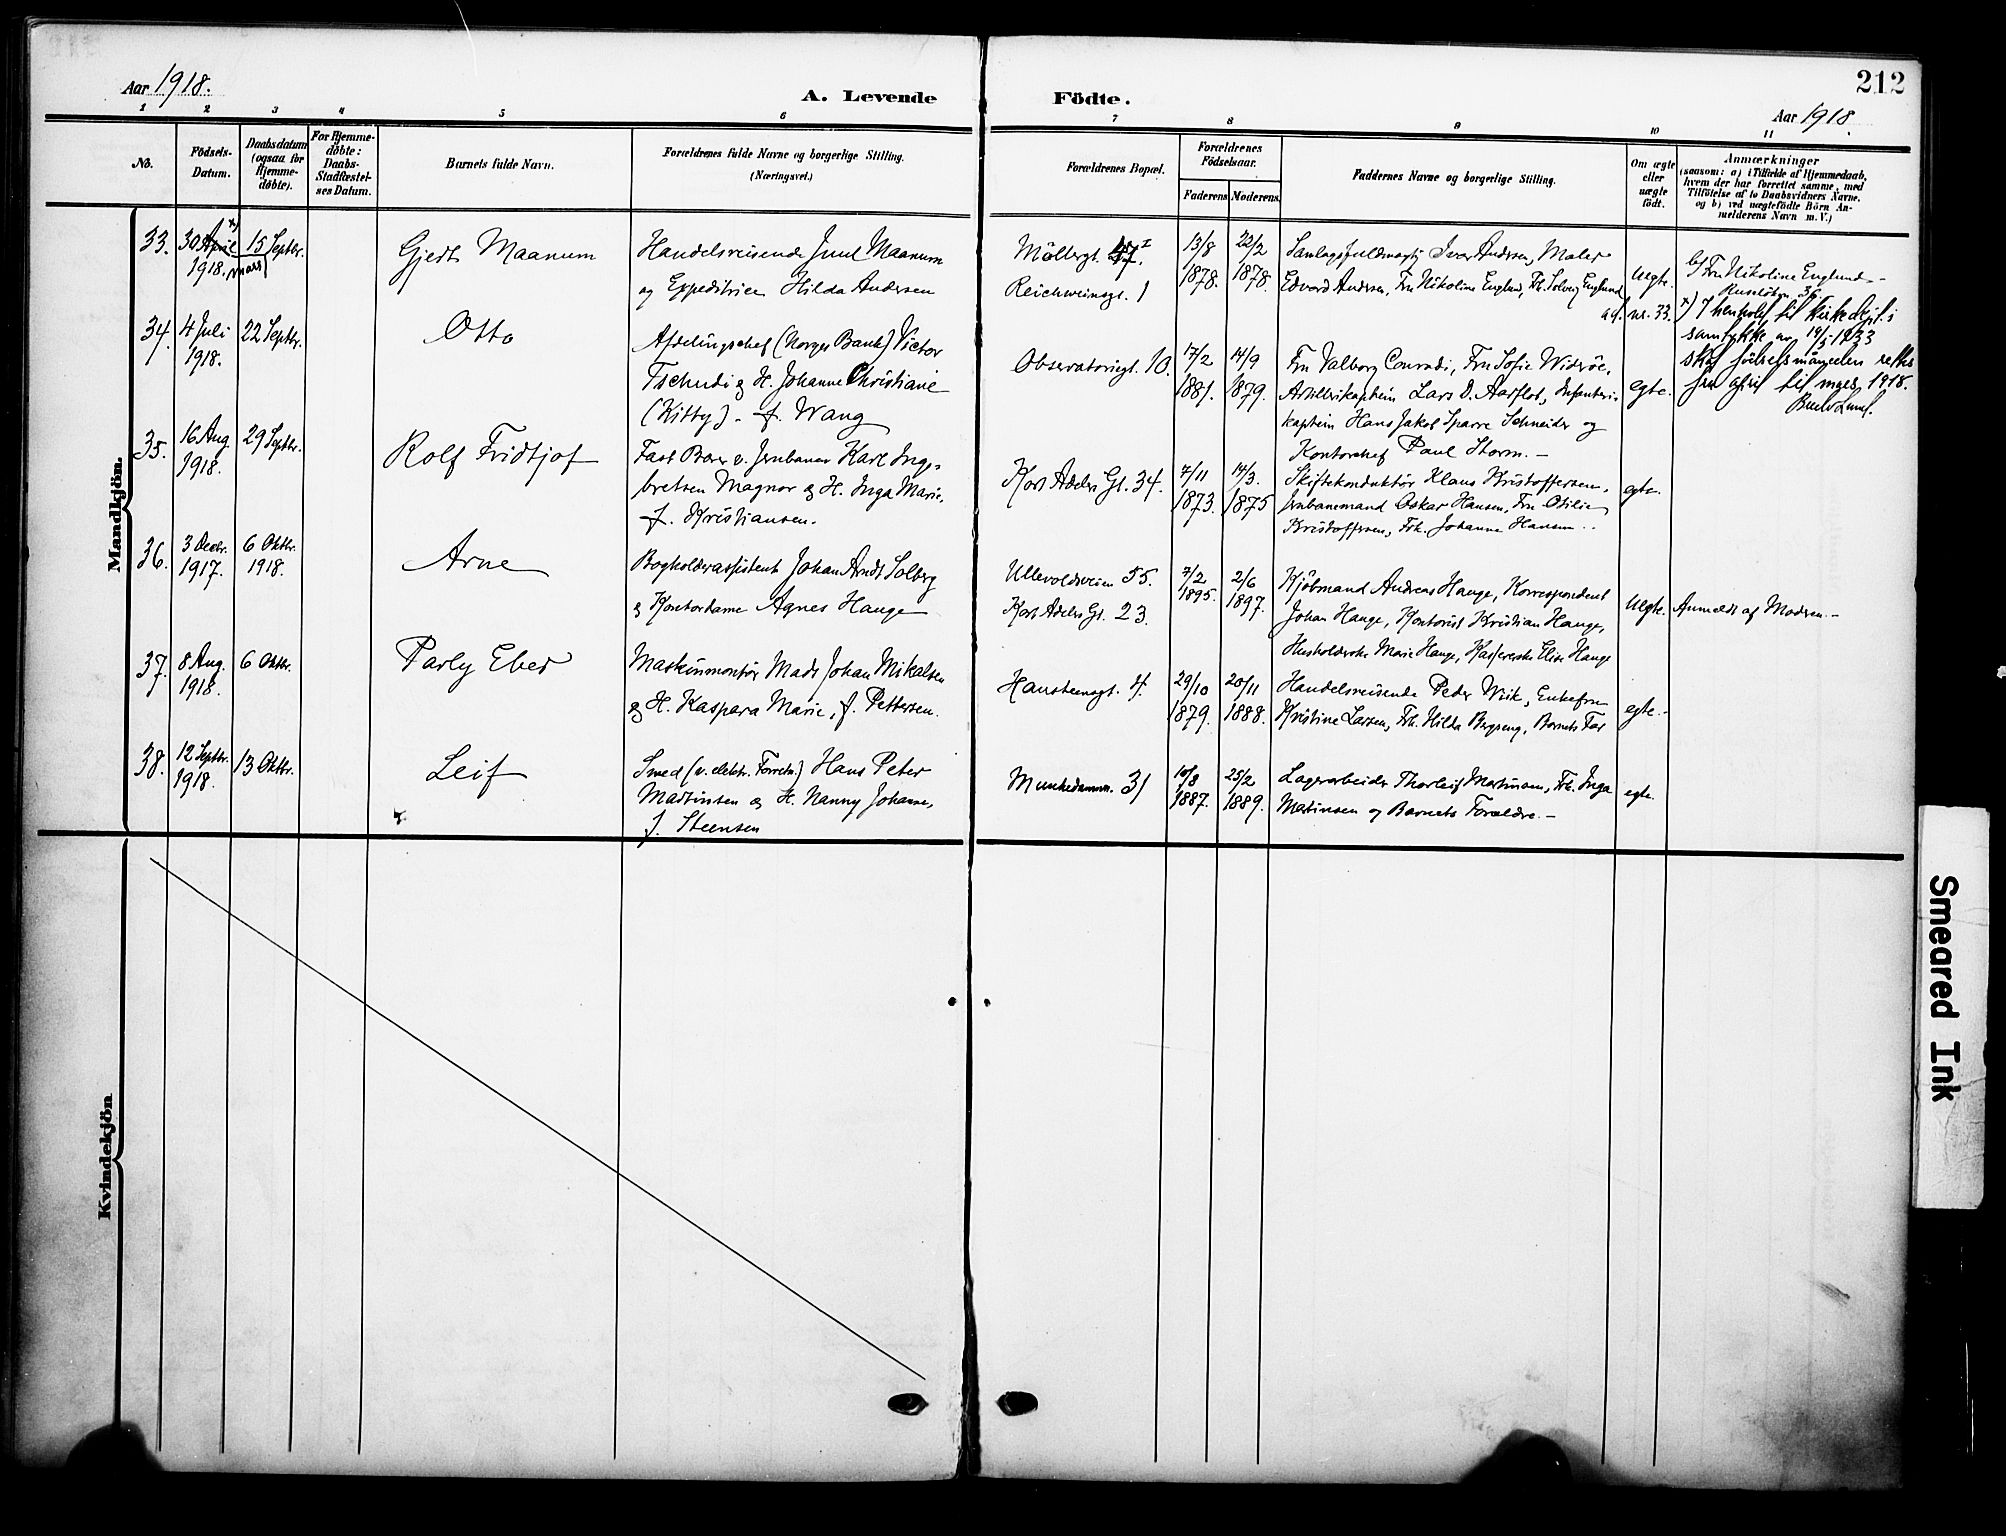 212
Aar 1918.
A. Levende Födte.
Aar 1918.
1 2 3 4 5 6 7 8 9 10 11
No.
Födsels-
Datum.
Daabsdatum
(ogsaa for
Hjemme-
döbte).
For Hjemme-
døbte:
Daabs-
Stadfæstel-
ses Datum.
Barnets fulde Navn.
Forældrenes fulde Navne og borgerlige Stilling.
(Næringsvei.)
Forældrenes Bopæl.
Forældrenes
Födselsaar.
Faderens Moderens.
Faddernes Navne og borgerlige Stilling.
Om ægte
eller
uægte
født.
Anmærkninger
(saasom: a) i Tilfælde af Hjemmedaab,
hvem der har forrettet samme, med
Tilföielse af to Daabsvidners Navne,
og b) ved uægtefödte Börn An-
melderens Navn m. V.)
Mandkjön.
33. 30 April x)
1918. mars
15 Septbr.
Gjedt Maanum
Handelsreisende Juul Maanum
og Expeditrice Hilda Andersen
Möllergt. 47 I
Reichweinsgt. 1
13/8
1878.
22/2
1878.
Samlagsfuldmægti Ivar Andersen, Maler
Edvard Andersen, Fru Nikoline Englund, Frk. Solveig Englund
uegte.
b) Fru Nikoline Englund
Ruseløkvn. 36
ad. nr. 33. x) I henhold til Kirkedept.s
samtykke av 19/5 1933
skal fødselsmåneden rettes
fra april til mars 1918.
34. 4 Juli
1918.
22 Septbr.
Otto
Afdelingschef (Norges Bank) Victor
Tschudi og H. Johanne Christiane
(Kitty). f. Wang
Observatoriegt. 10.
17/2
1881.
14/9
1879.
Fru Valborg Conradi, Fru Sofie Wideröe,
Artillerikaptein Lars D. Aarflot, Infanteri-
kaptein Hans Jakob Sparre Schneider og
Kontorchef Paul Storm. -
egte.
35. 16 Aug
1918.
29 Septbr.
Rolf Fridtjof
Fast Bører v. Jernbanen Karl Inge-
bretsen Magnor og H. Inga Marie,
f. Kristiansen.
Kort Adelers Gt. 34.
7/11
1873.
14/3.
1875
Skiftekonduktör Klaus Kristoffersen,
Jernbanemand Oskar Hansen, Fru Otilie
Kristoffersen, Frk. Johanne Hansen..
egte.
36. 3 Decbr.
1917.
6 Oktbr.
1918.
Arne
Bogholderassistent Johan Arndt Solberg
og Kontordame Agnes Hauge
Ullevoldsveien 55.
Kort Adelers Gt. 23.
7/2
1895.
2/6
1897.
Kjöbmand Andreas Hauge, Korrespondent
Johan Hauge, Kontorist Kristian Hauge,
Husholderske Marie Hauge, Kassererske Elise Hauge
Uegte. Anmeldt af Moderen. -
37. 8 Aug.
1918.
6 Oktbr.
Parly Ebed
Maskinmontör Mads Johan Mikalsen
og H. Kaspara Marie, f. Pettersen.
Hansteensgt. 4.
29/10
1879.
20/11
1888.
Handelsreisende Peder Wiik, Enkefru
Kristine Larsen, Frk. Hilda Bergseng, Barnets Far
egte. -
38. 12 Septbr.
1918.
13 Oktbr.
Leif
Smed (v. elektr. Forretn.) Hans Peter
Martinsen og H. Nanny Johanne,
f. Steensen
Munkedamsvn. 31
10/8
1887.
25/2
1889.
Lagerarbeider Thorleif Martinsen, Frk. Inga
Martinsen og Barnets Forældre. -
egte.
Kvindekjön
Smeared Ink